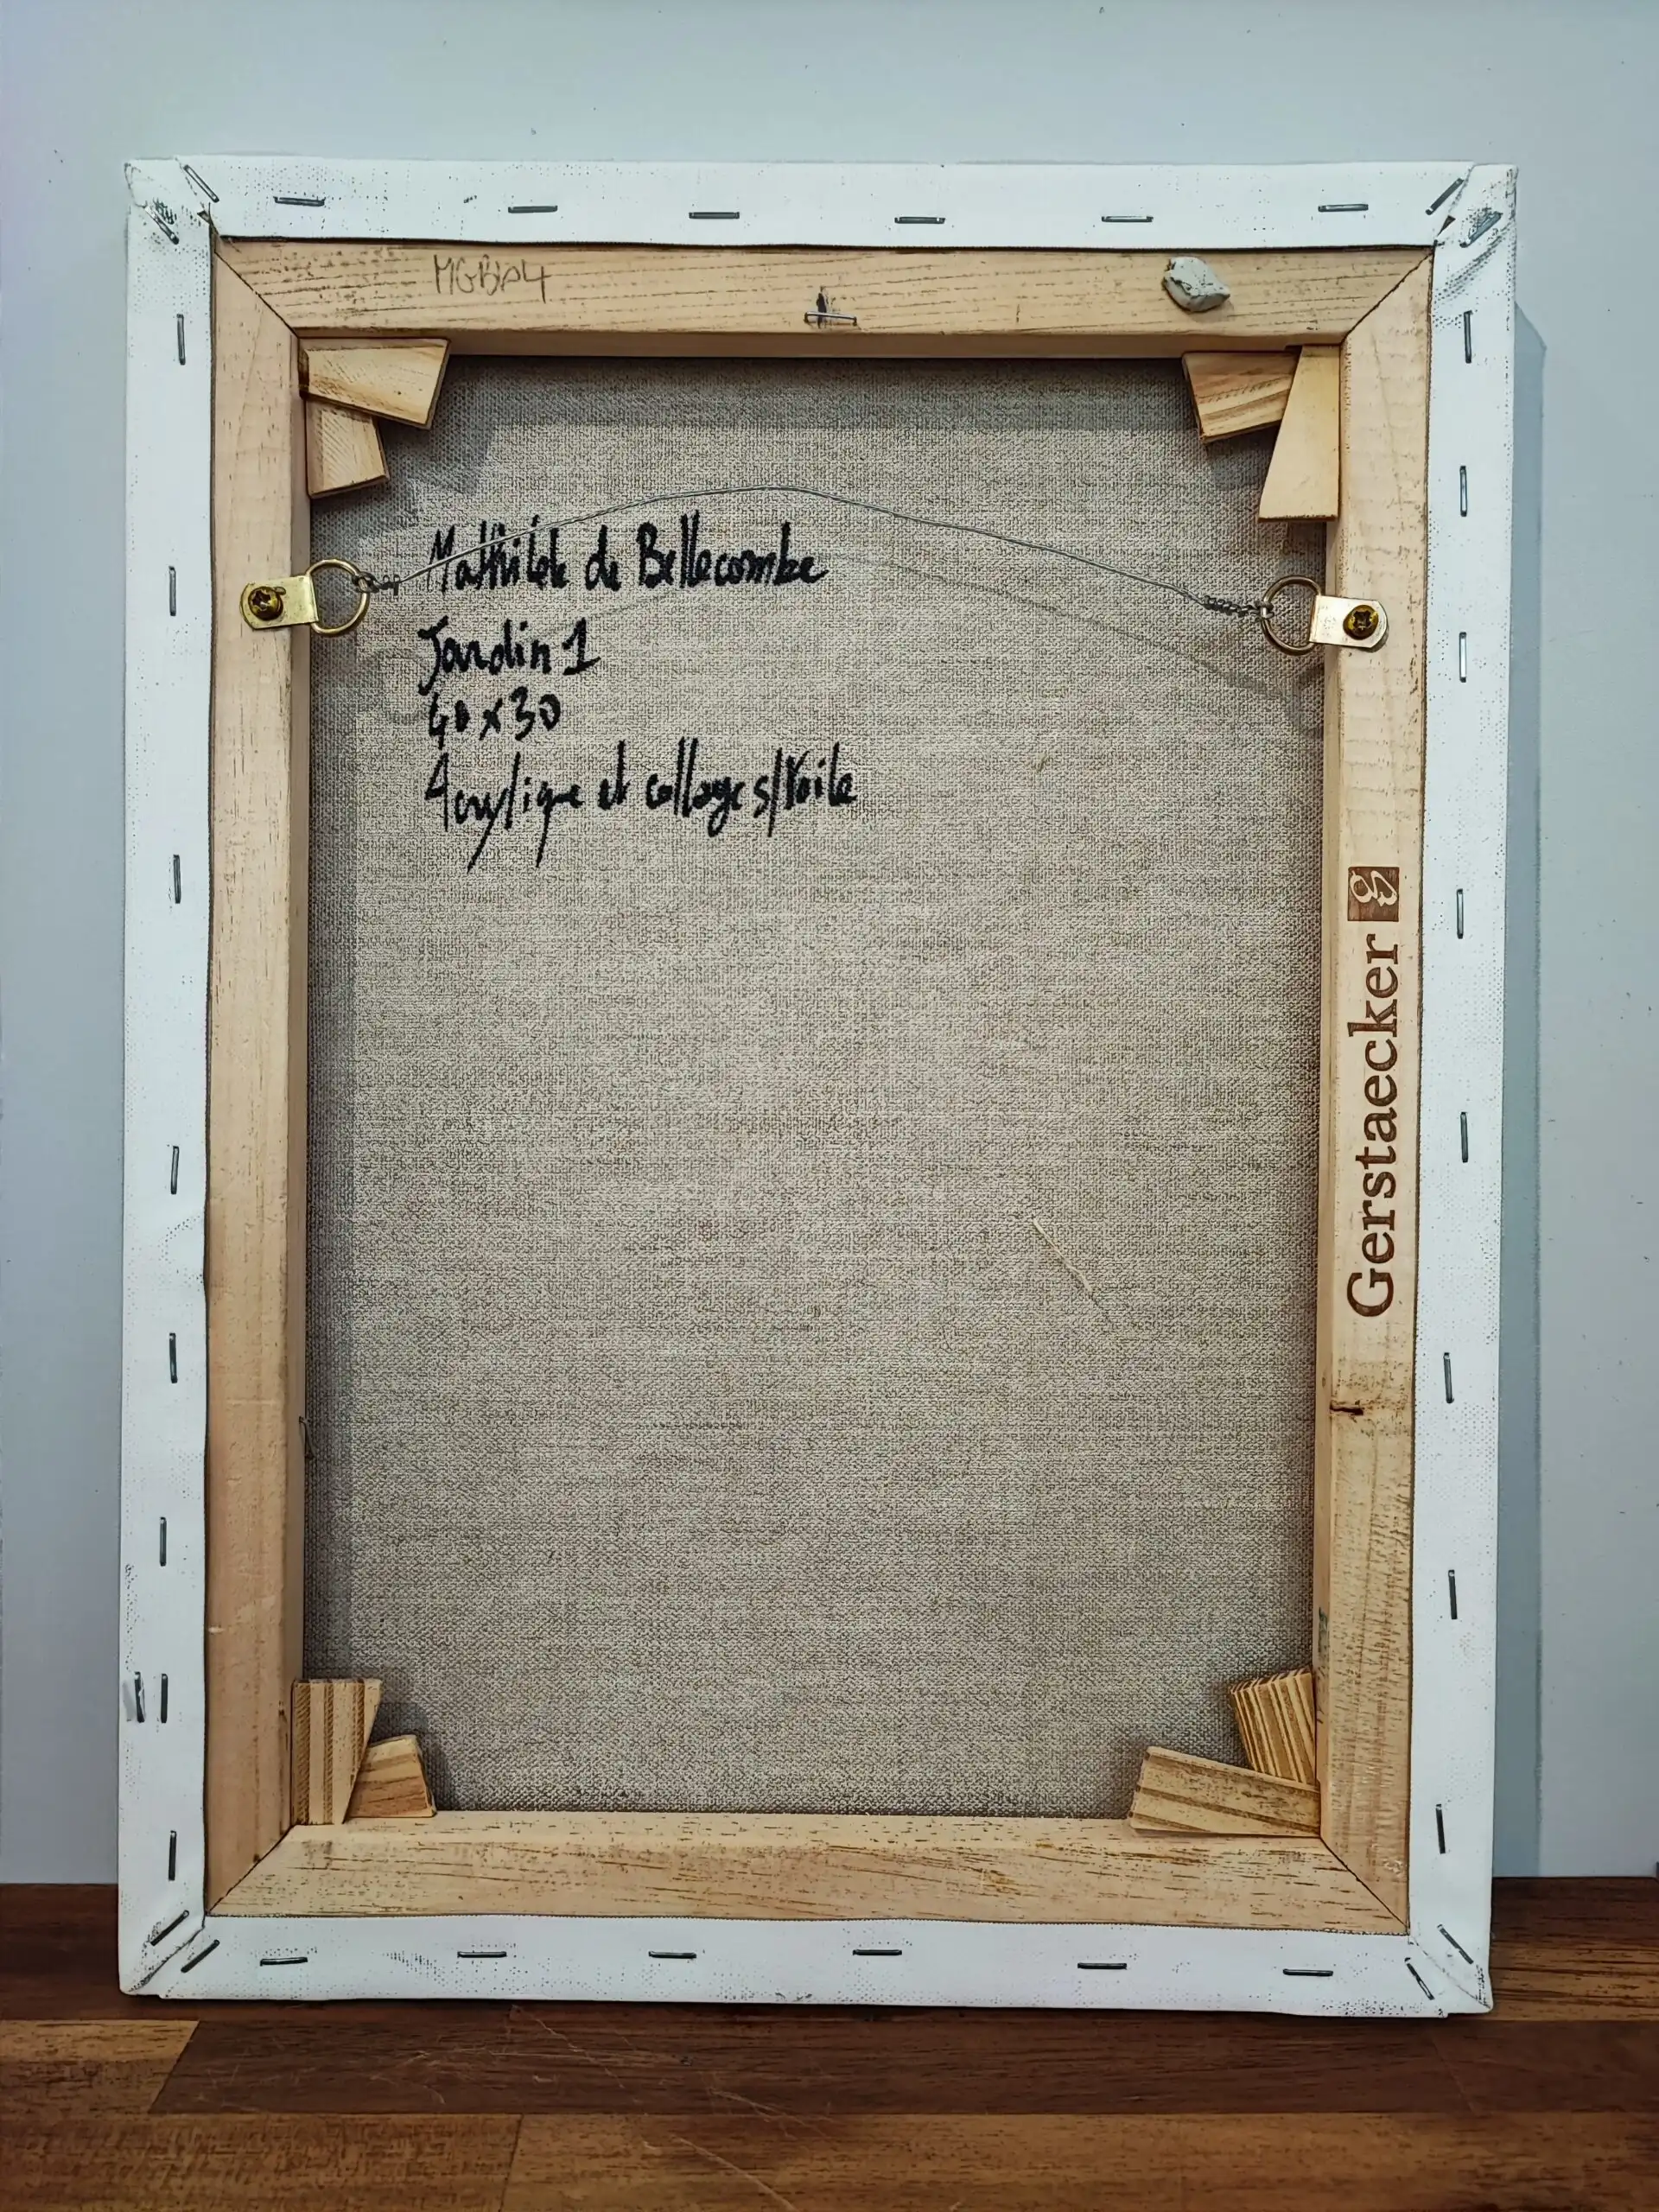 Mathilde de Bellecombe
Jardin 1
40x30
Acrylique et collages s/toile
Gerstaecker